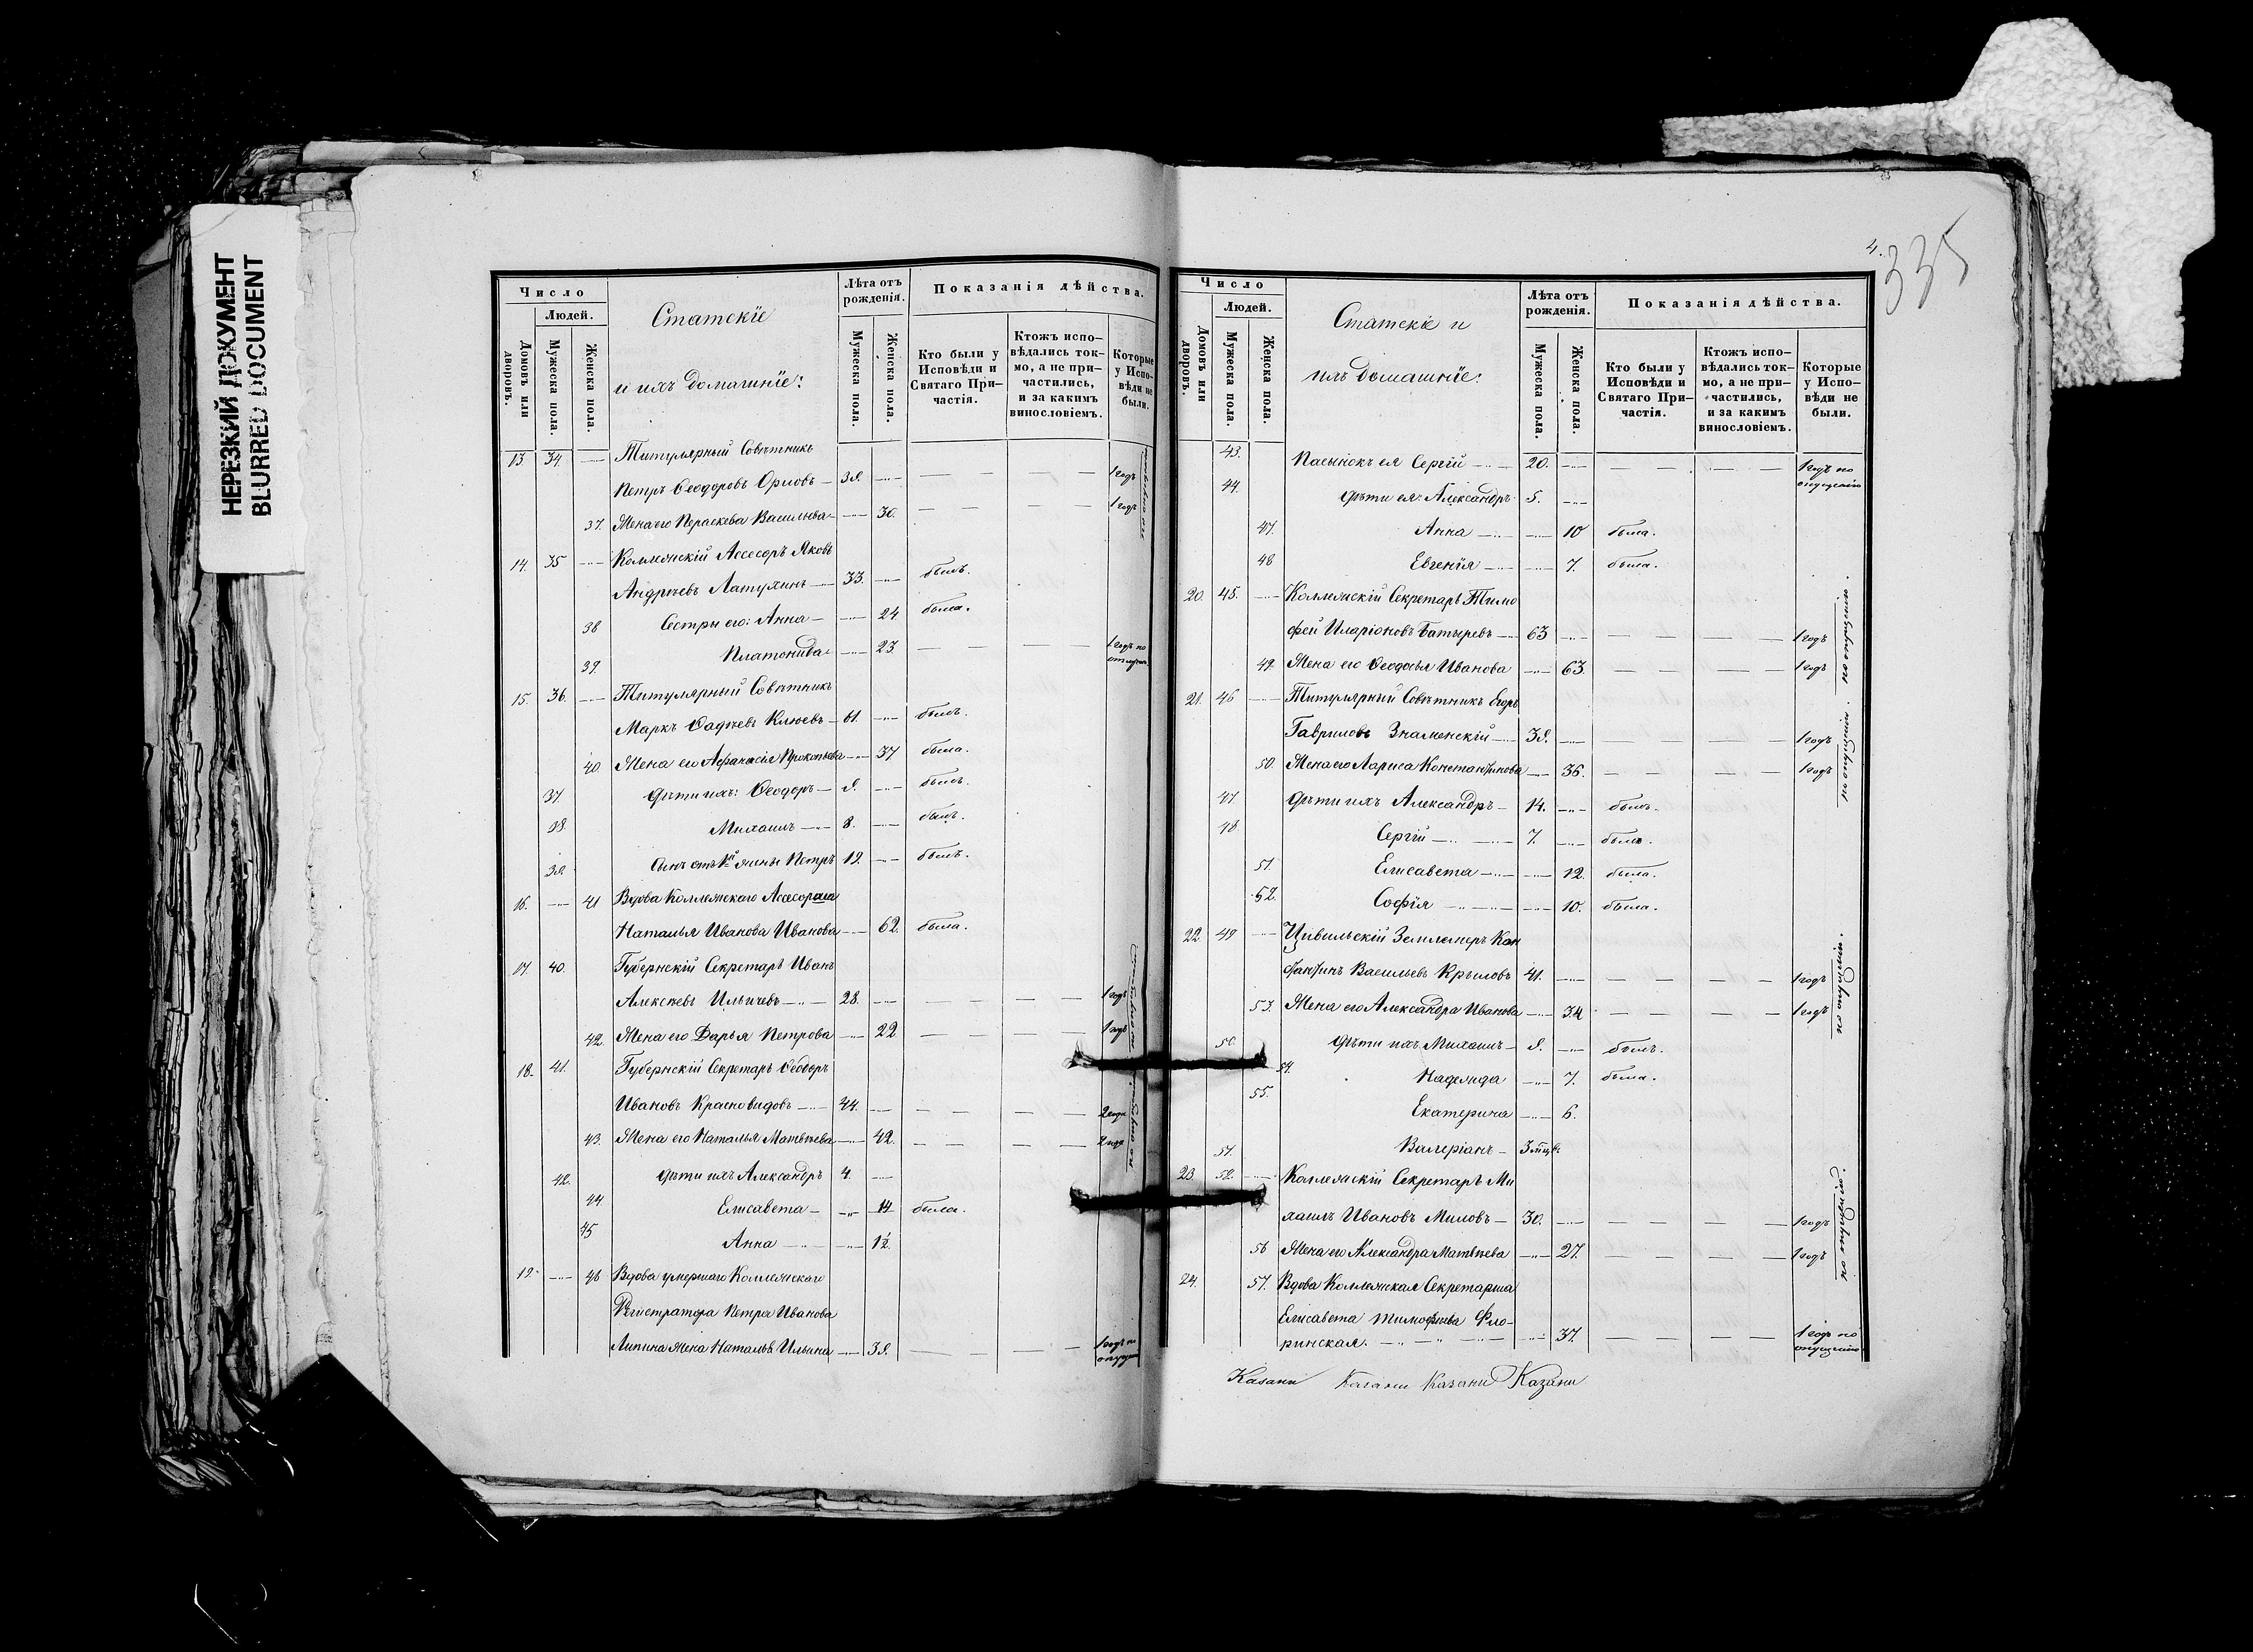 НЕРЕЗКИЙ ДОКУМЕНТ
BLURRED DOCUMENT
Число
Людей.
Домовъ или дворовъ.
Мужеска пола.
Женска пола.
Статскіе
и ихъ домашніе:
Лѣта отъ рожденія.
Мужеска пола.
Женска пола.
Показанія дѣйства.
Кто были у Исповѣди и Святаго Причастія.
Ктожъ исповѣдались токмо, а не причастились, и за какимъ винословіемъ.
Которые у Исповѣди не были.
13 34 Титулярный Совѣтникъ
Петръ Ѳеодоровъ Орловъ 39. 1 годъ
37. Жена его Параскева Васильева 30. 1 годъ
14. 35 Коллежскій Ассесоръ Яковъ
Андреевъ Латухинъ 33. былъ.
38 Сестры его: Анна 24 была.
39. Платонида 23. 1 годъ по
15. 36. Титулярный Совѣтникъ
Маркъ Ѳадѣевъ Клюевъ 61. былъ.
40. Жена его Афанасія Прокопьева 37 была.
37. Дѣти ихъ: Ѳеодоръ 9. былъ.
38. Михаилъ 8. былъ.
39. Сынъ отъ 1й жены Петръ 19. былъ.
16. 41 Вдова Коллежскаго Ассесора
Наталья Иванова Иванова 62. была.
17. 40. Губернскій Секретарь Иванъ
Алексѣевъ Ильичевъ 28. 1 годъ
42. Жена его Дарья Петрова 22 1 годъ
18. 41. Губернскій Секретарь Ѳеодоръ
Ивановъ Красновидовъ 44. 2 года
43. Жена его Наталья Матвѣева 42. 2 года
42. Дѣти ихъ Александръ 4.
44. Елисавета 14 была.
45 Анна 12.
19. 46 Вдова умершаго Коллежскаго
Регистратора Петра Иванова
Липина жена Наталья Ильина 39. 1 годъ по
4.
335
Число
Людей.
Домовъ или дворовъ.
Мужеска пола.
Женска пола.
Статскіе и
ихъ домашніе:
Лѣта отъ рожденія.
Мужеска пола.
Женска пола.
Показанія дѣйства.
Кто были у Исповѣди и Святаго Причастія.
Ктожъ исповѣдались токмо, а не причастились, и за какимъ винословіемъ.
Которые у Исповѣди не были.
43. Пасынокъ ея Сергій 20. 1 годъ по опущенію
44. Дѣти ея: Александръ 5.
47. Анна 10 была.
48 Евгенія 7. была.
20. 45. Коллежскій Секретарь Тимо
фей Иларіоновъ Батыревъ 63 1 годъ
49. Жена его Ѳеодосья Иванова 63. 1 годъ
21. 46 Титулярный Совѣтникъ Егоръ
Гавриловъ Знаменскій 39. 1 годъ
50. Жена его Лариса Константинова 36. 1 годъ
47. Дѣти ихъ Александръ 14. былъ.
48. Сергій 7. былъ.
51. Елисавета 12. была.
52. Софія 10. была.
22. 49 Цивильскій Землемеръ Кон
стантинъ Васильевъ Крыловъ 41. 1 годъ
53. Жена его Александра Иванова 34 1 годъ
50. Дѣти ихъ: Михаилъ 9. былъ.
54. Надежда 7. была.
55. Екатерина 6.
51. Валеріанъ 3 мѣся.
23. 52. Коллежскій Секретарь Ми
хаилъ Ивановъ Миловъ 30. 1 годъ
56 Жена его Александра Матвѣева 27. 1 годъ
24. 57. Вдова Коллежская Секретарша
Елисавета Тимофѣева Фло-
ринская. 37. 1 годъ по опущенію
по опущенію.
по опущенію.
по опущенію.
по опущенію.
Казани Казани Казани Казани